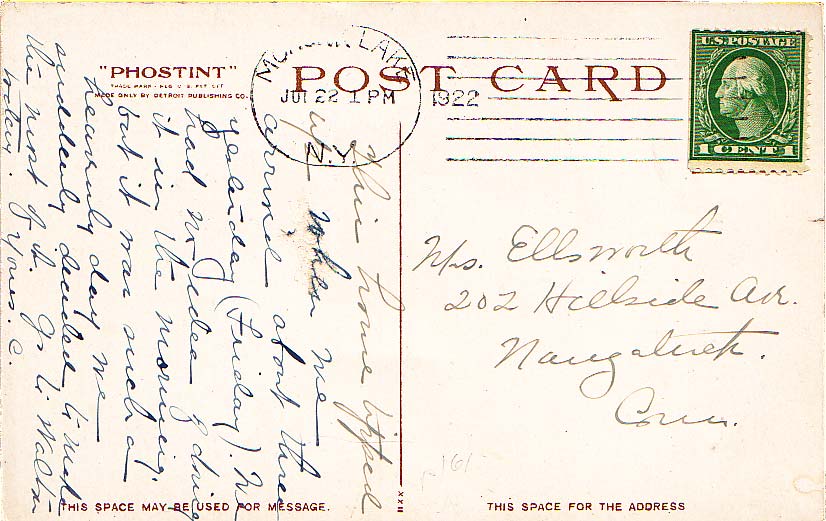 "PHOSTINT"
TRADE MARK - REG U.S. PAT. OFF
MADE ONLY BY DETROIT PUBLISHING CO.
POST CARD
MOHONK LAKE
22 1 PM
1922
N.Y.
U.S. POSTAGE
1 CENT 1
This home tipped
up when we
arrived about three
yesterday (Friday). We
had no idea of doing
it in the morning,
but it was such a
heavenly day we
suddenly decided to make
the most of it. Go to Walton
today. Yours. C.
Mrs. Ellsworth
202 Hillside Av.
Naugatuck.
Conn.
161
XXII
THIS SPACE MAY BE USED FOR MESSAGE.
THIS SPACE FOR THE ADDRESS